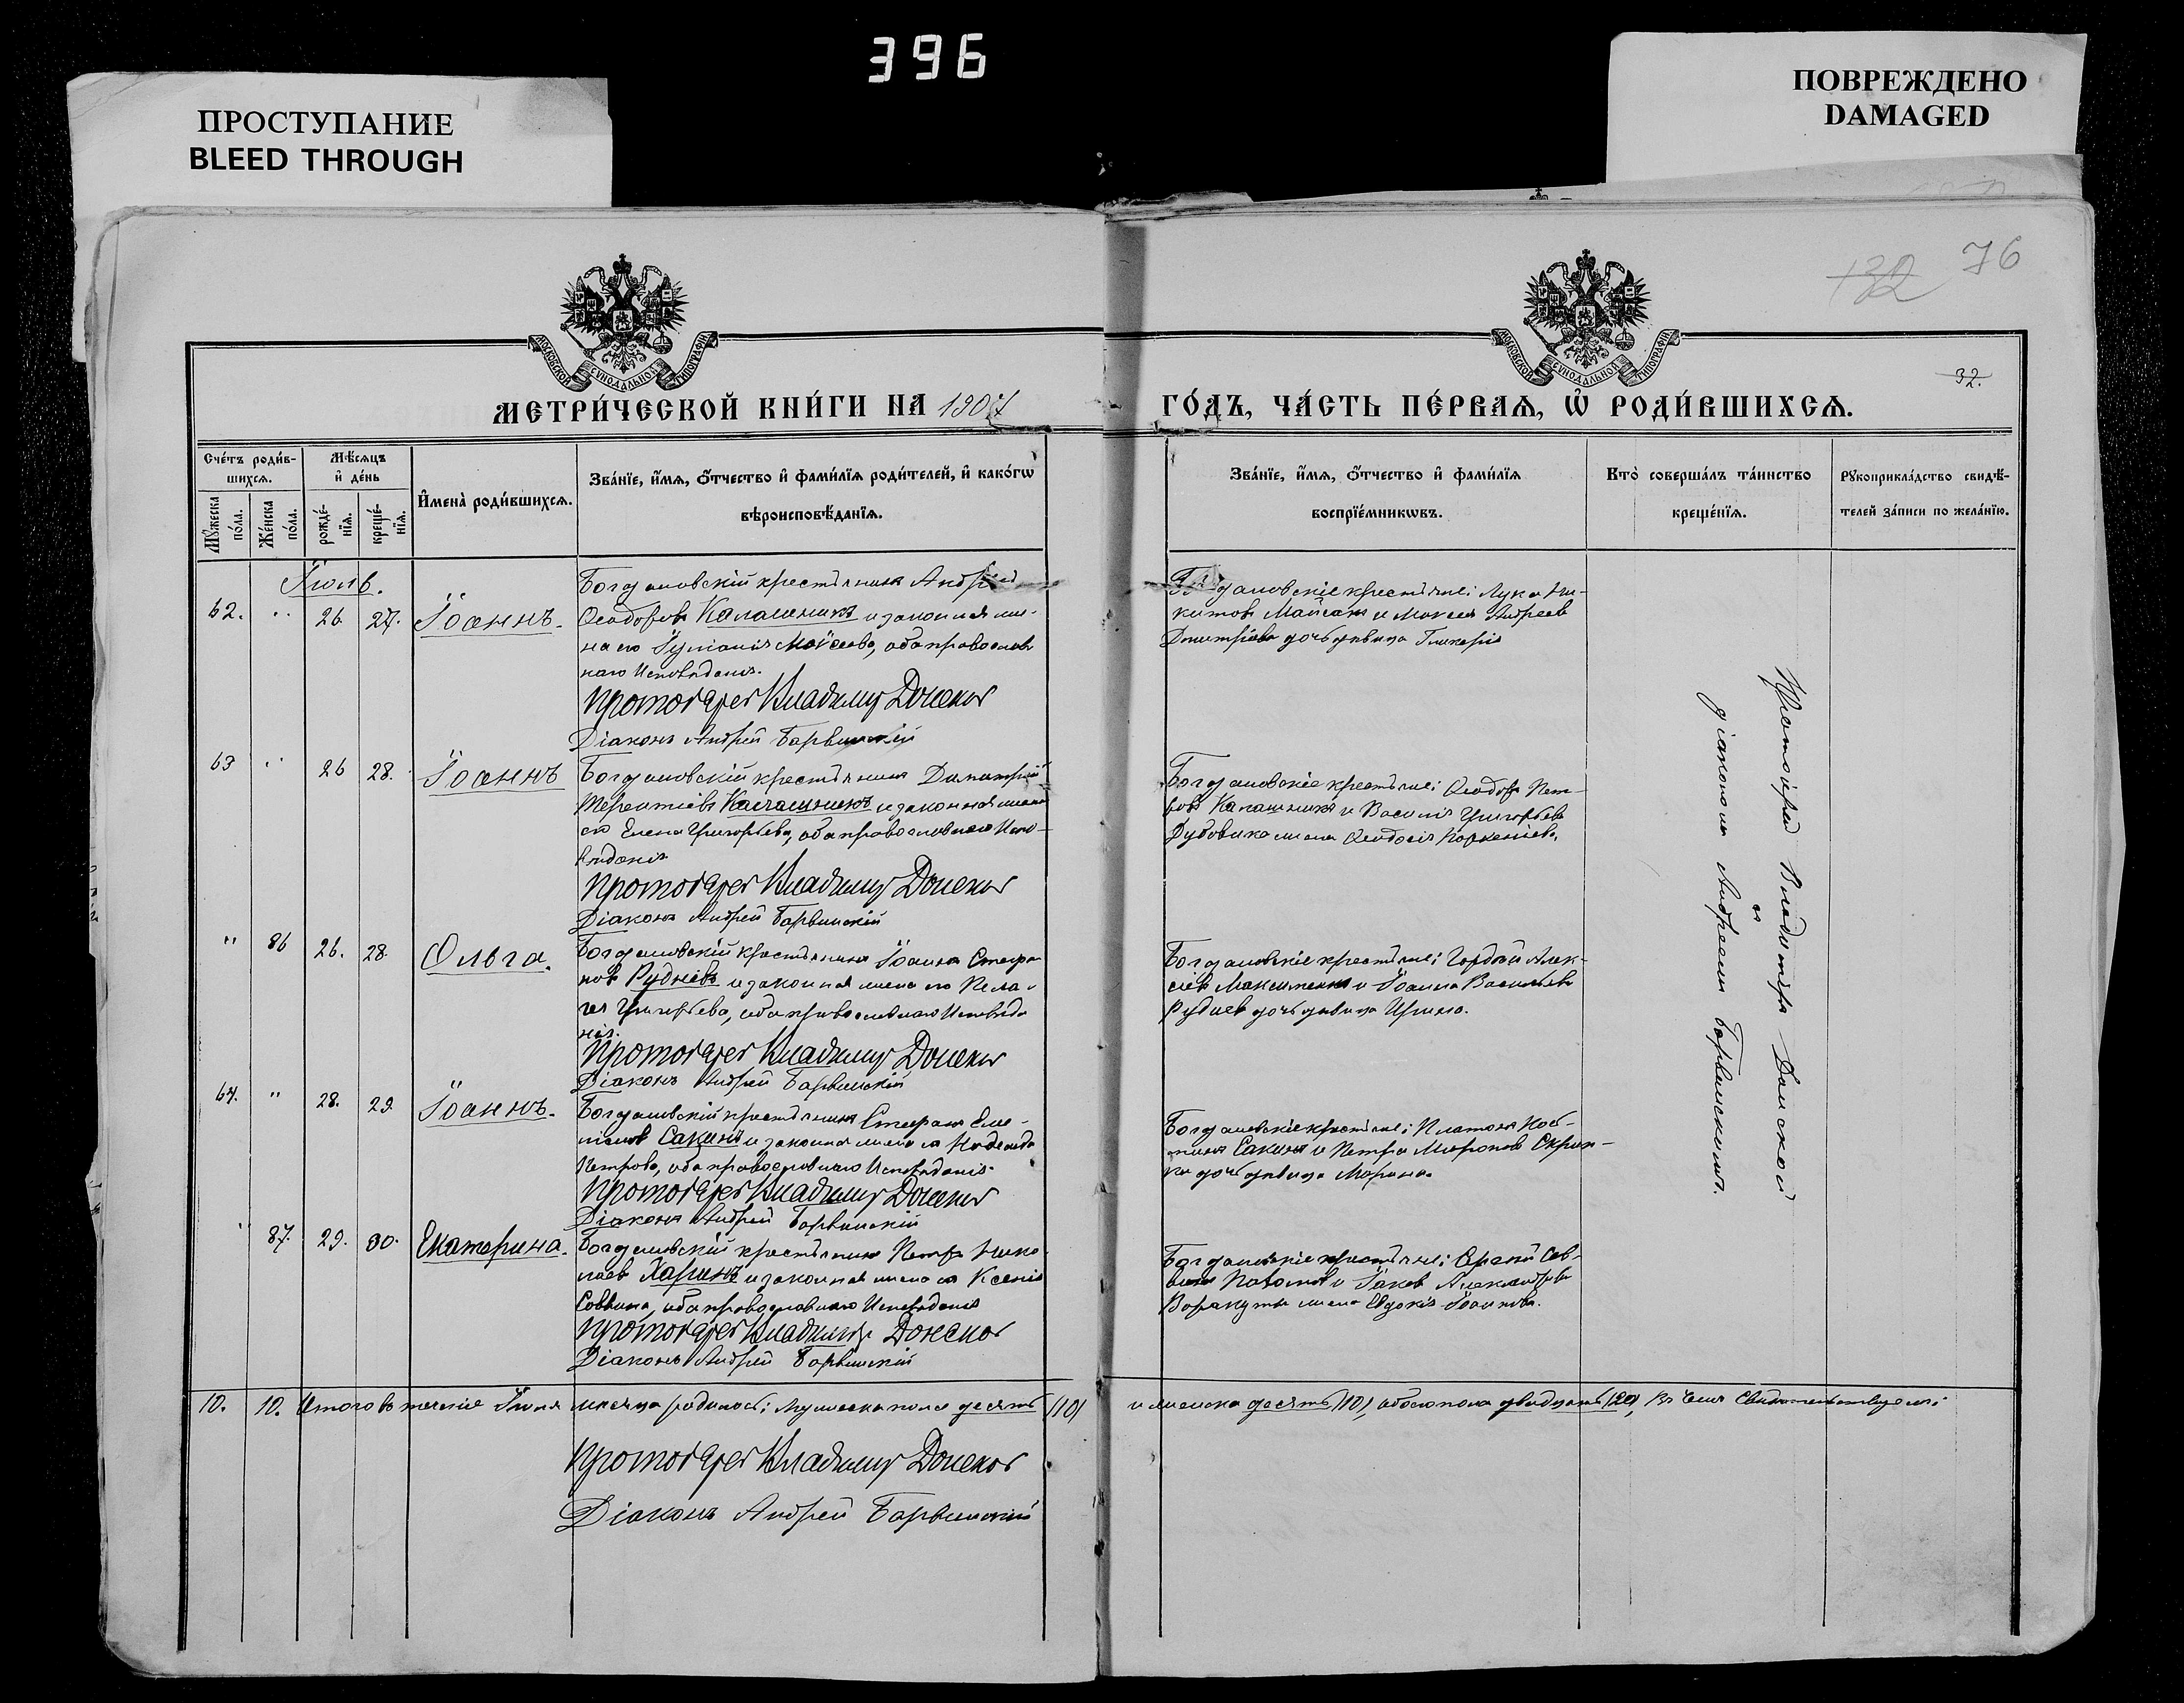 396
ПРОСТУПАНИЕ
BLEED THROUGH
ПОВРЕЖДЕНО
DAMAGED
132 76
32.
МОСКОВСКОЙ СѴНОДАЛЬНОЙ ТИПОГРАФІИ
МОСКОВСКОЙ СѴНОДАЛЬНОЙ ТИПОГРАФІИ
МЕТРИ́ЧЕСКОЙ КНИ́ГИ НА 1907
ГО́ДЪ, ЧА́СТЬ ПЕ́РВАѦ, Ѽ РОДИ́ВШИХСѦ.
Сче́тъ роди́в-
шихсѧ.
Мѣ́сѧцъ
и҆ де́нь
Мꙋ́жеска
по́ла.
Же́нска
по́ла.
рожде́-
нїѧ.
креще́-
нїѧ.
И҆мена̀ роди́вшихсѧ.
Зва́нїе, и҆́мѧ, ѻ҆́тчество и҆ фами́лїѧ роди́телей, и҆ како́гѡ
вѣроисповѣ́данїѧ.
Зва́нїе, и҆́мѧ, ѻ҆́тчество и҆ фами́лїѧ
воспрїе́мникѡвъ.
Кто̀ соверша́лъ та́инство
креще́нїѧ.
Рꙋкоприкла́дство свидѣ́-
телей за́писи по жела́нїю.
Іюль.
62. " 26 27. Іоаннъ.
Богдановскій крестьянинъ Андрей
Ѳеодоровъ Калашникъ и законная же-
на его Іуліанія Моисеева, оба православ
наго Исповѣданія.
Протоіерей Владимир Донской
Діаконъ Андрей Барвинскій
Богдановскіе крестьяне: Лука Ни-
китовъ Майсакъ и Моисея Андреева
Дмитріева дочь дѣвица Гликерія
63 " 26 28. Іоаннъ
Богдановскій крестьянинъ Димитрій
Терентіевъ Калашникъ и законная жена
его Елена Григорьева, оба православнаго Испо-
вѣданія
Протоіерей Владимир Донской
Діаконъ Андрей Барвинскій
Богдановскіе крестьяне: Ѳеодоръ Пет-
ровъ Калашникъ и Василія Григорьева
Дубовика жена Ѳеодосія Корнеліева.
" 86 26. 28. Ольга.
Богдановскій крестьянинъ Іоаннъ Стефа
новъ Рудневъ и законная жена его Пела-
гея Григорьева, оба православнаго Исповѣда
нія.
Протоіерей Владимир Донской
Діаконъ Андрей Барвинскій
Богдановскіе крестьяне: Гордій Алек-
сѣевъ Максименко и Іоанна Васильева
Руднева дочь дѣвица Ирина.
64. " 28. 29 Іоаннъ.
Богдановскій крестьянинъ Стефанъ
Сакунъ и законная жена его Надежда
Петрова, оба православнаго Исповѣданія.
Протоіерей Владимир Донской
Діаконъ Андрей Барвинскій
Богдановскіе крестьяне: Платонъ
Сакунъ и Петра Миронова Скрип-
ки дочь дѣвица Марина.
" 87. 29. 30. Екатерина.
Богдановскій крестьянинъ Петръ Нико
лаевъ Харинъ и законная жена его Ксенія
Саввина, оба православнаго Исповѣданія
Протоіерей Владимир Донской
Діаконъ Андрей Барвинскій
Богдановскіе крестьяне: Сав-
винъ и Іакова Александрова
жена Евдокія Іоаннова.
Протоіерей Владиміръ Донской
съ
діакономъ Андреемъ Барвинскимъ.
10. 10. Итого въ теченіе Іюля мѣсяца родилось: мужеска пола десять (10) и женска десять (10), обоего пола двадцать (20), въ чемъ свидѣтельствуемъ:
Протоіерей Владимир Донской
Діаконъ Андрей Барвинскій